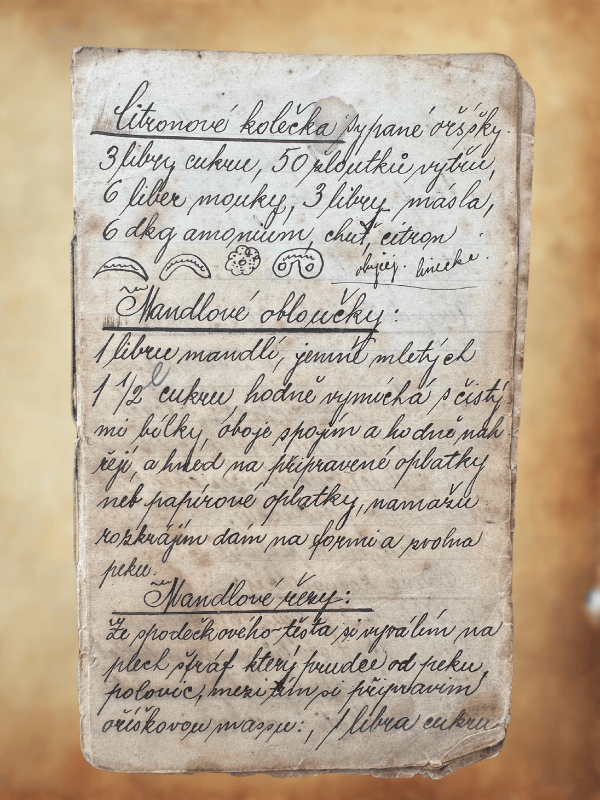 Citronové kolečka sypané oříšky.
3 libry cukru, 50 žloutků vytřu,
6 liber mouky, 3 libry másla,
6 dkg amonium, chuť, citron
obyčej. linecké.
Mandlové obloučky:
1 libru mandlí, jemně mletých
1 1/2 l cukru hodně vymíchá s čistý
mi bílky, oboje spojím a hodně nah
řeji, a hned na připravené oplatky
neb papírové oplatky, namažu
rozkrájím dám na formi a zvolna
peku.
Mandlové řezy:
Ze spodečkového těsta si vyválím na
plech štráf který prudce od peku,
polovic, mezi tím si připravím
oříškovou massu:, 1 libra cukru